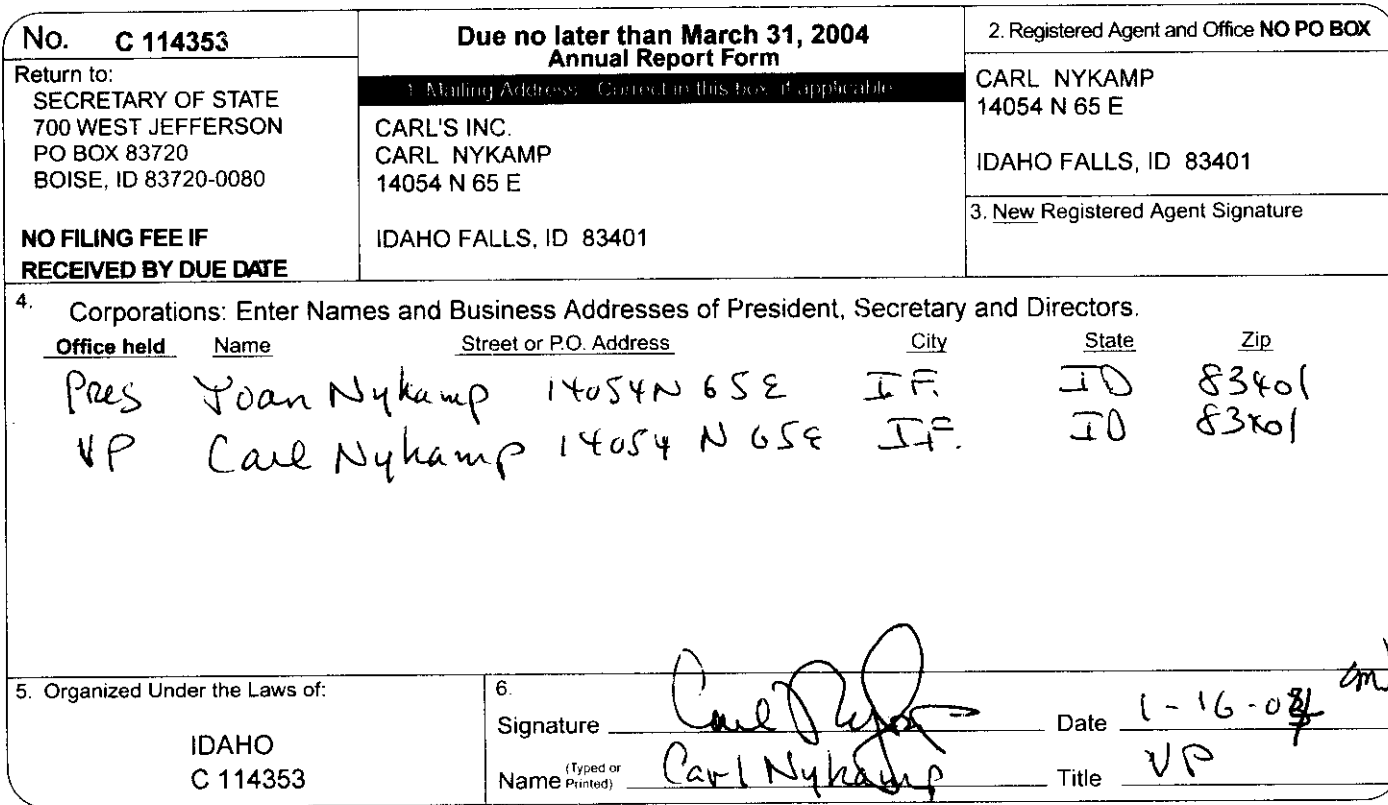 No. C 114353
Return to:
SECRETARY OF STATE
700 WEST JEFFERSON
PO BOX 83720
BOISE, ID 83720-0080
NO FILING FEE IF
RECEIVED BY DUE DATE
Due no later than March 31, 2004
Annual Report Form
1. Mailing Address: Correct in this box, if applicable
CARL'S INC.
CARL NYKAMP
14054 N 65 E
IDAHO FALLS, ID 83401
2. Registered Agent and Office NO PO BOX
CARL NYKAMP
14054 N 65 E
IDAHO FALLS, ID 83401
3. New Registered Agent Signature
4. Corporations: Enter Names and Business Addresses of President, Secretary and Directors.
Office held Name Street or P.O. Address City State Zip
Pres Joan Nykamp 14054 N 65 E I F. ID 83401
VP Carl Nykamp 14054 N 65 E I F. ID 83401
5. Organized Under the Laws of:
IDAHO
C 114353
6.
Signature Carl Nykamp Date 1-16-04
Name (Typed or Printed) Carl Nykamp Title VP